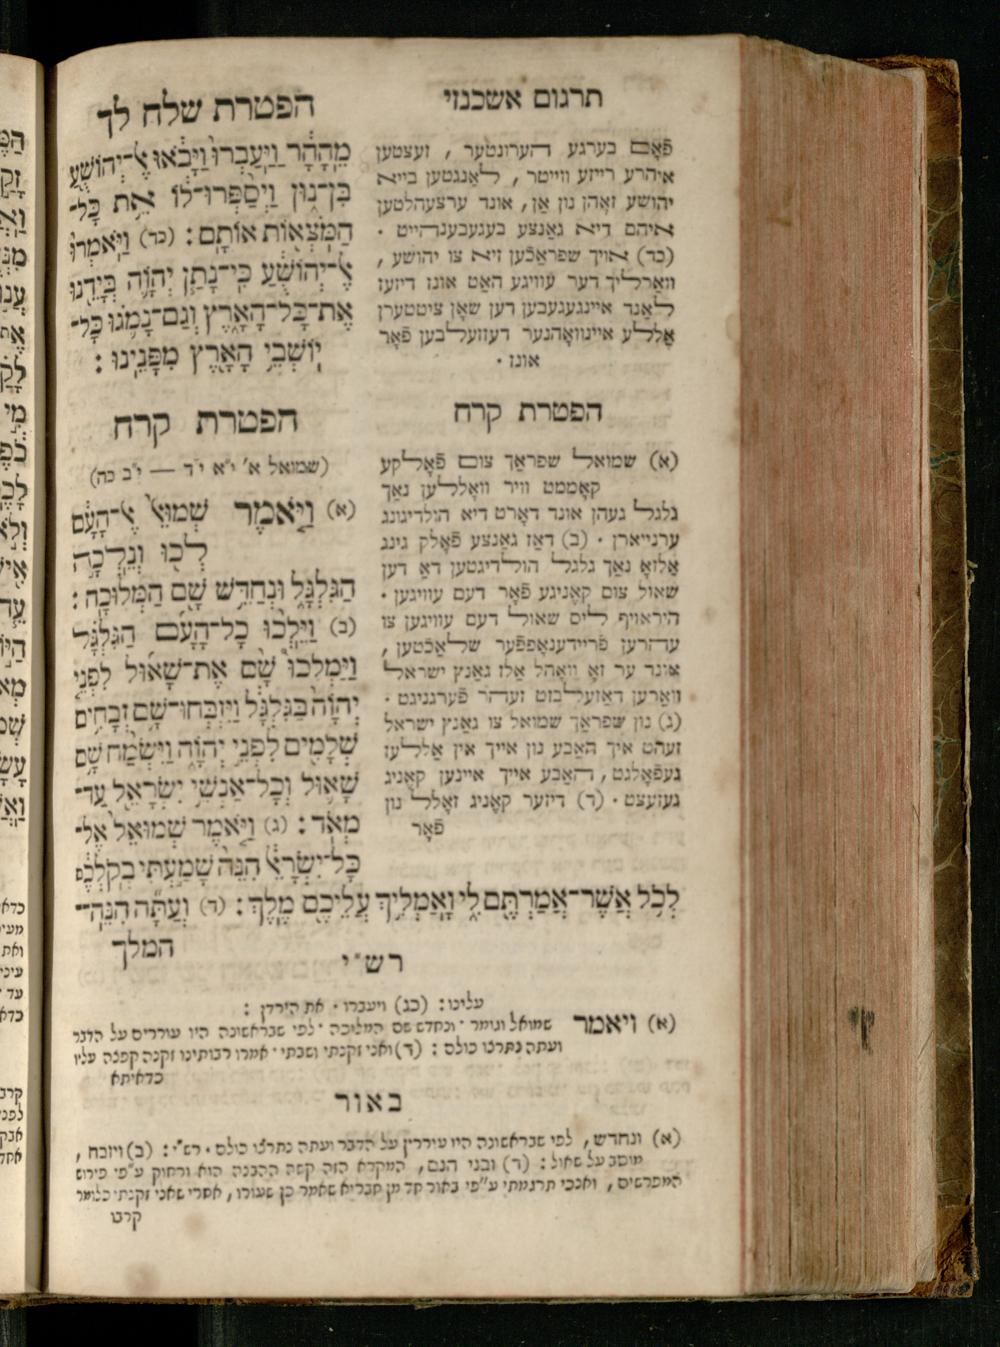 תרגום אשכנזי
פֿאָם בערגע הערונטער, זעצטען
איהרע רייזע ווייטר, לאַנגטען בייא
יהושע זאָהן נון אַן, אונד ערצעהלטען
איהם דיא גאַנצע בעגעבענהייט.
(כד) אויך שפראַכֿען זיא צו יהושע,
וואַרליך דער עוויגע האַט אונז דיזעז
לאַנד איינגעגעבען דען שאָן ציטטערן
אַללע איינוואָהנער דעזזעלבען פֿאָר
אונז.
הפטרת קרח
(א) שמואל שפראַך צום פֿאָלקע
קאָממט וויר וואָללען נאַך
גלגל געהן אונד דאָרט דיא הולדיגונג
ערנייארן. (ב) דאַז גאַנצע פֿאָלק גינג
אַלזאָ נאַך גלגל הולדיגטען דאַ דען
שאול צום קאָניגע פֿאָר דעם עוויגען.
היראויף ליס שאול דעם עוויגען צו
עהרען פֿריידענאָפּפֿער שלאַכֿטען,
אונד ער זאָ וואָהל אַלז גאַנץ ישראל
וואַרען דאַזעלבסט זעהר פֿערגניגט.
(ג) נון שפראַך שמואל צו גאַנץ ישראל
זעהט איך האַבע נון אייך אין אַללעז
געפֿאָלגט, האַבע אייך איינען קאָניג
געזעצט. (ד) דיזער קאָניג זאָלל נון
פֿאָר
הפטרת שלח לך
מֵהָהָר וַיַּעַבְרוּ וַיָּבֹאוּ אֶל־יְהוֹשֻׁעַ
בִּן־נוּן וַיְסַפְּרוּ־לוֹ אֵת כָּל־
הַמֹּצְאוֹת אוֹתָם: (כד) וַיֹּאמְרוּ
אֶל־יְהוֹשֻׁעַ כִּי־נָתַן יְהוָֹה בְּיָדֵנוּ
אֶת־כָּל־הָאָרֶץ וְגַם־נָמֹגוּ כָּל־
יוֹשְׁבֵי הָאָרֶץ מִפָּנֵינוּ:
הפטרת קרח
(שמואל א׳ י״א י״ד — י״ב כה)
(א) וַיֹּאמֶר שְׁמוּאֵל אֶל־הָעָם
לְכוּ וְנֵלְכָה
הַגִּלְגָּל וּנְחַדֵּשׁ שָׁם הַמְּלוּכָה:
(ב) וַיֵּלְכוּ כָל־הָעָם הַגִּלְגָּל
וַיַּמְלִכוּ שָׁם אֶת־שָׁאוּל לִפְנֵי
יְהוָֹה בַּגִּלְגָּל וַיִּזְבְּחוּ־שָׁם זְבָחִים
שְׁלָמִים לִפְנֵי יְהוָֹה וַיִּשְׂמַח שָׁם
שָׁאוּל וְכָל־אַנְשֵׁי יִשְׂרָאֵל עַד־
מְאֹד: (ג) וַיֹּאמֶר שְׁמוּאֵל אֶל־
כָּל־יִשְׂרָאֵל הִנֵּה שָׁמַעְתִּי בְקֹלְכֶם
לְכֹל אֲשֶׁר־אֲמַרְתֶּם לִי וָאַמְלִיךְ עֲלֵיכֶם מֶלֶךְ: (ד) וְעַתָּה הִנֵּה־
המלך
רש״י
עלינו: (כג) ויעברו. את הירדן:
(א) ויאמר שמואל וגומר. ונחדש שם המלוכה. לפי שבראשונה היו עוררים על הדבר
ועתה נתרצו כולם: (ד) ואני זקנתי ושבתי. אמרו רבותינו זקנה קפצה עליו
כדאיתא
באור
(א) ונחדש, לפי שבראשונה היו עוררין על הדבר ועתה נתרצו כולם. רש״י: (ב) ויזבח,
מוסב על שאול: (ד) ובני הנם, המקרא הזה קשה ההבנה הוא ורחוק ע״פי פירוש
המפרשים, ואנכי תרגמתי ע״פי באור חד מן חבריא שאמר כן שעורו, אחרי שאני זקנתי כלומר
קרבו